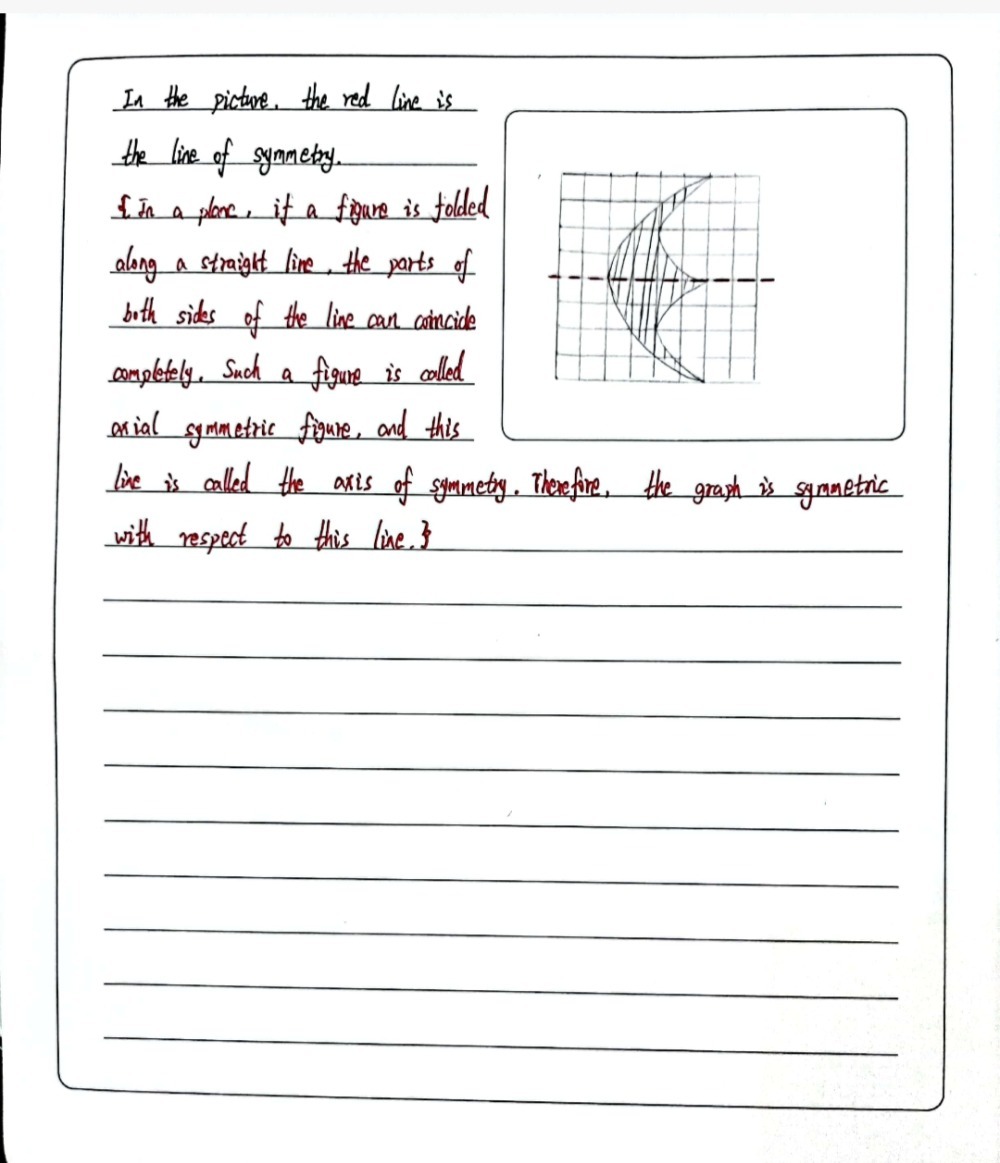 In the picture, the red line is
the line of symmetry.
{ In a plane, if a figure is folded
along a straight line, the parts of
both sides of the line can coincide
completely. Such a figure is called
axial symmetric figure, and this
line is called the axis of symmetry. Therefore, the graph is symmetric
with respect to this line.}